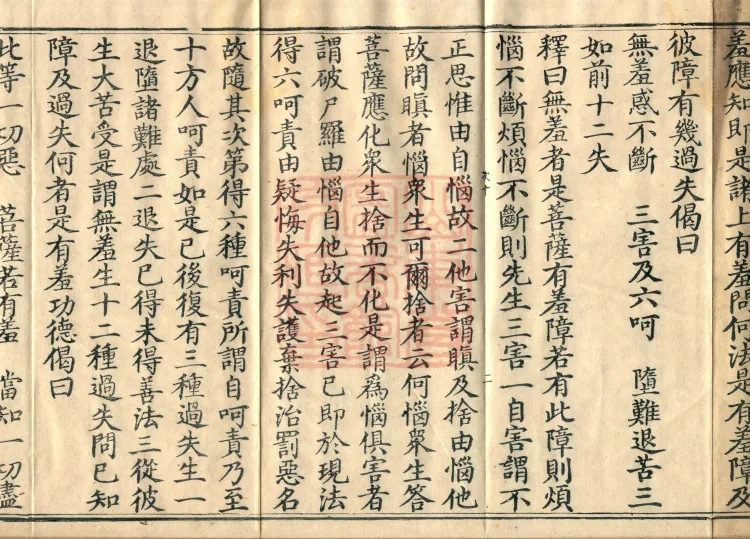 羞應知則是諸上有羞問何法是有羞障及
彼障有幾過失偈曰
無羞惑不斷　三害及六呵　墮難退苦三
如前十二失
釋曰無羞者是菩薩有羞障若有此障則煩
惱不斷煩惱不斷則先生三害一自害謂不
正思惟由自惱故二他害謂瞋及捨由惱他
故問瞋者惱衆生可爾捨者云何惱衆生答
菩薩應化衆生捨而不化是謂爲惱俱害者
謂破尸羅由惱自他故起三害已即於現法
得六呵責由疑悔失利失護棄捨治罰惡名
故隨其次第得六種呵責所謂自呵責乃至
十方人呵責如是已後復有三種過失生一
退墮諸難處二退失已得未得善法三從彼
生大苦受是謂無羞生十二種過失問已知
障及過失何者是有羞功德偈曰
此等一切惡　菩薩若有羞　當知一切盡